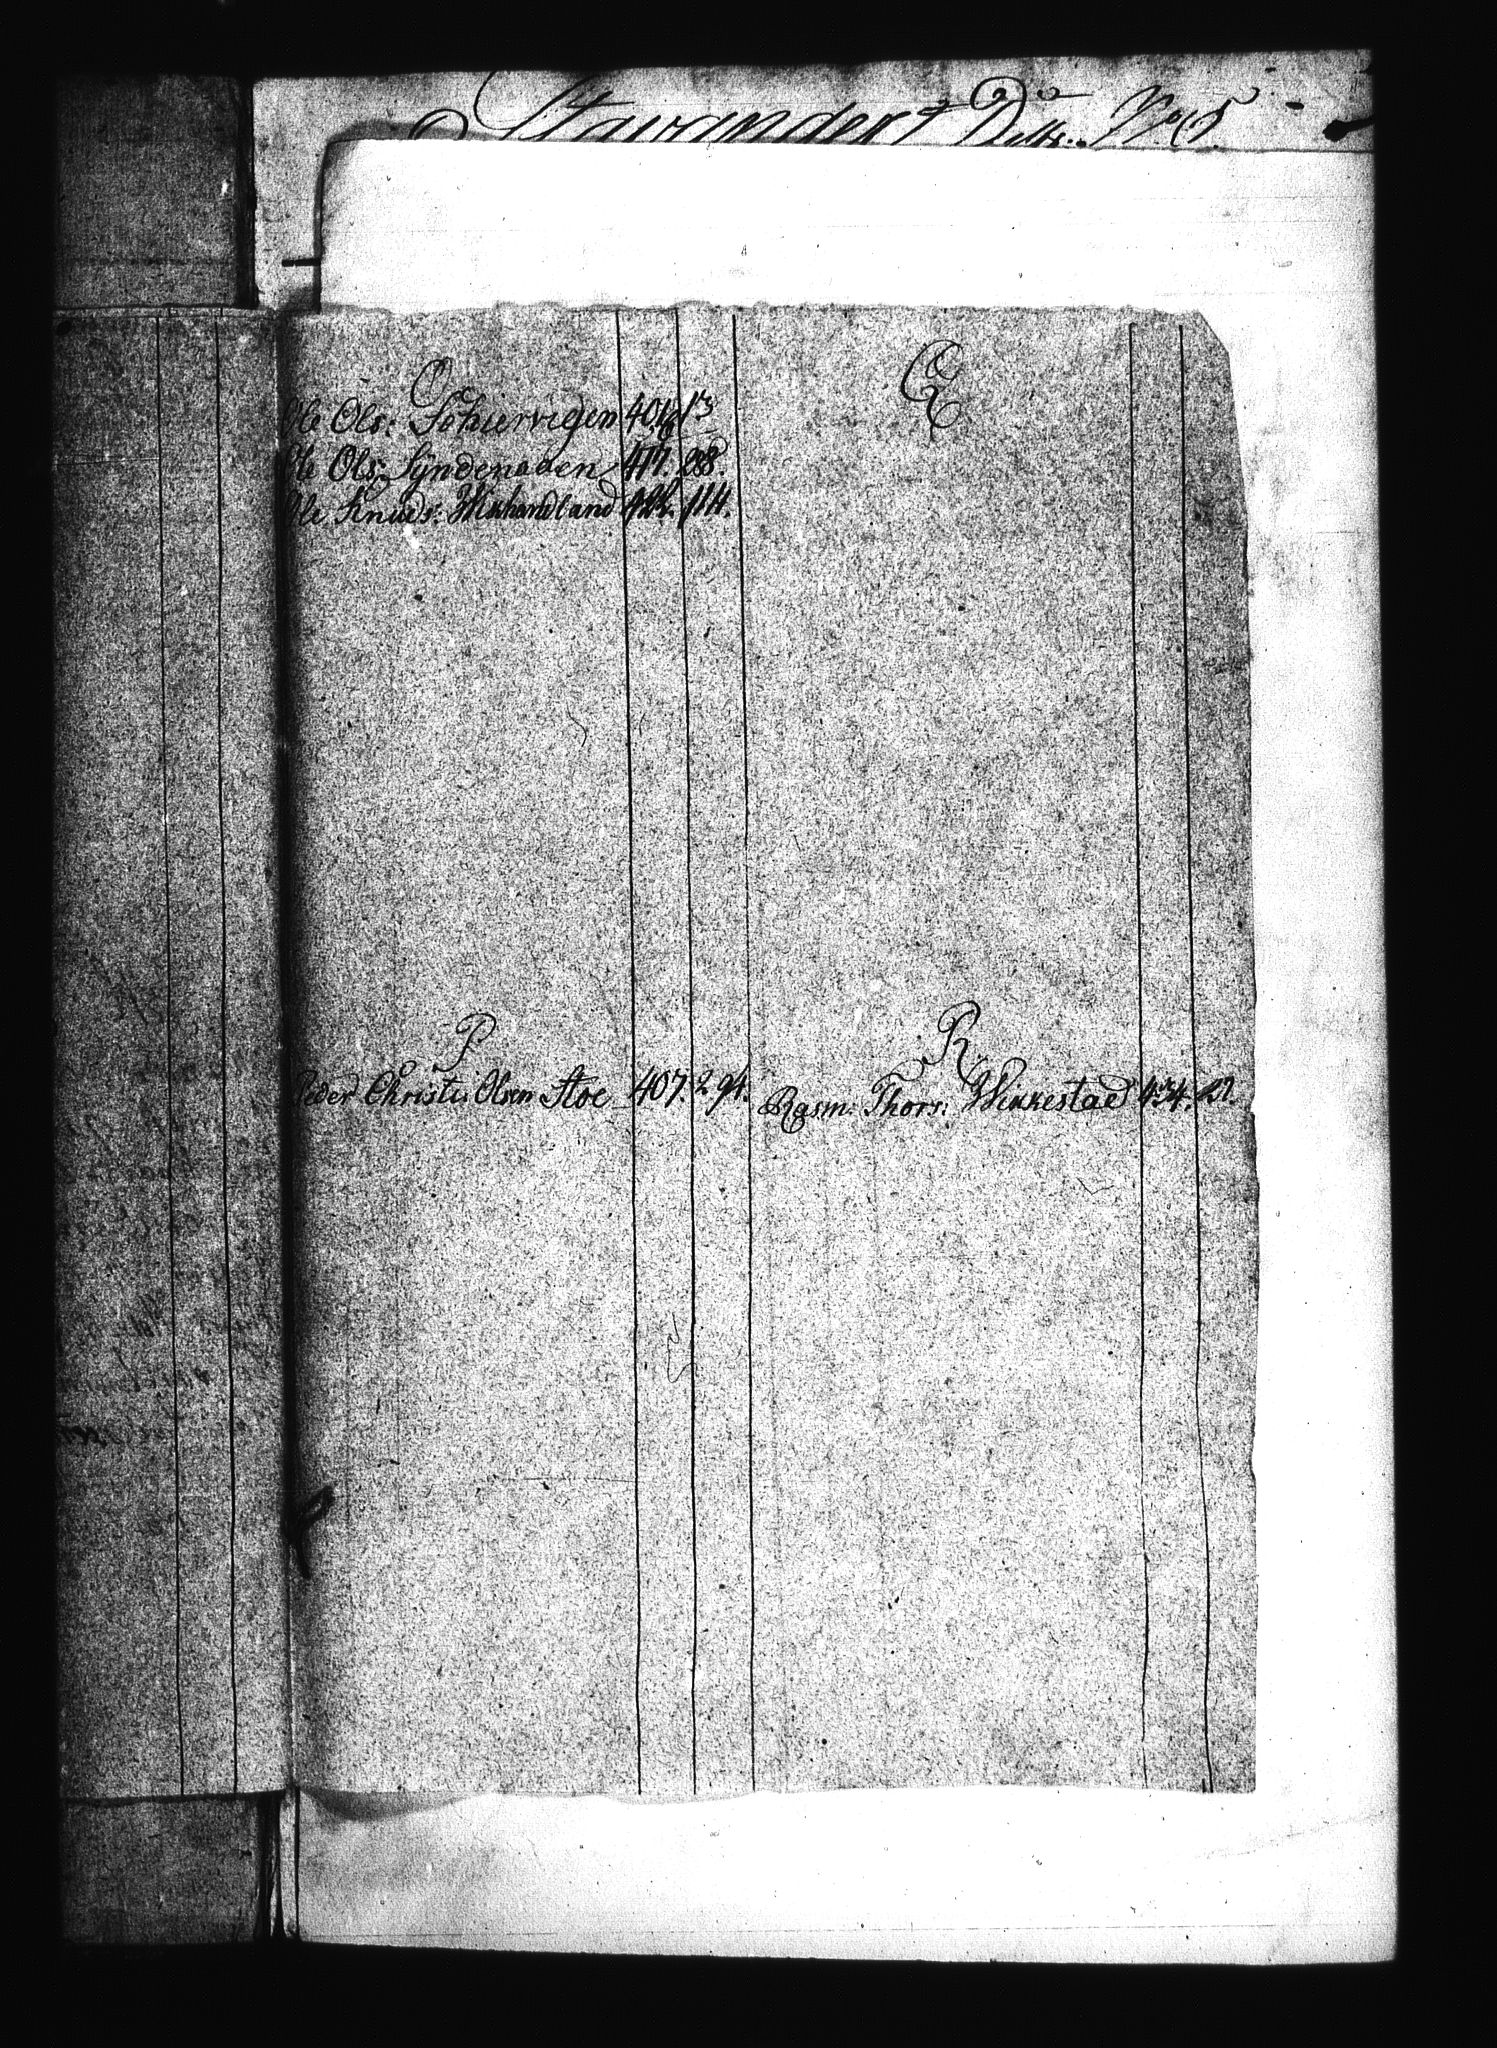 Stavanders Dists: No 5.
O
Ole Ols: Schiervigen 401 13
Ole Ols: Syndenaaen 417. 288.
Ole Knuds: Wikhandland 422. 114.
Q
P
Peder Christi: Olsen Stoe 407. 294.
R
Rasm: Thors: Wikkestad 434. 27.